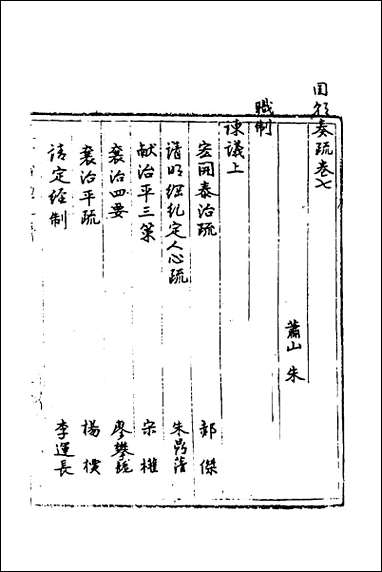 奏疏卷七
蕭山 朱
職制
諫議上
宏開泰治疏 郝傑
請明綱紀定人心疏 朱
獻治平三策 宋權
襄治四要 廖攀
襄治平疏 楊
請定經制 李運長